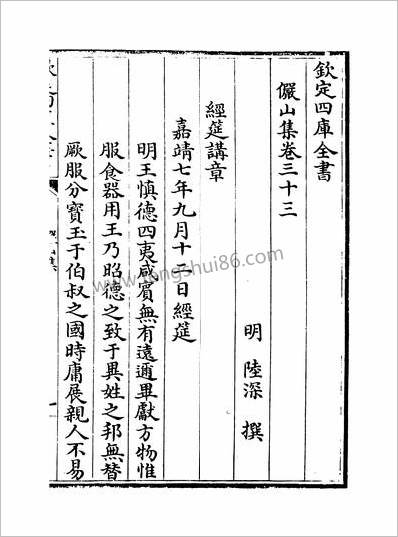 欽定四庫全書
儼山集卷三十三
明 陸深 撰
經筵講章
嘉靖七年九月十二日經筵
明王慎德四夷咸賓無有遠邇畢獻方物惟
服食器用王乃昭德之致于異姓之邦無替
厥服分寳玉于伯叔之國時庸展親人不易